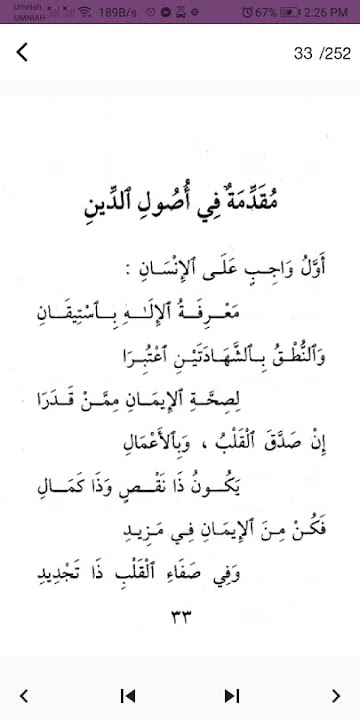 Umniah
UMNIAH
189B/s
67%
2:26 PM
33 /252
مُقَدِّمَةٌ فِي أُصُولِ ٱلدِّينِ
أَوَّلُ وَاجِبٍ عَلَى ٱلإِنْسَانِ :
مَعْرِفَةُ ٱلإِلَـٰهِ بِٱسْتِيقَانِ
وَٱلنُّطْقُ بِٱلشَّهَادَتَيْنِ ٱعْتُبِرَا
لِصِحَّةِ ٱلإِيمَانِ مِمَّنْ قَدَرَا
إِنْ صَدَّقَ ٱلْقَلْبُ ، وَبِٱلأَعْمَالِ
يَكُونُ ذَا نَقْصٍ وَذَا كَمَالِ
فَكُنْ مِنَ ٱلإِيمَانِ فِي مَزِيدِ
وَفِي صَفَاءِ ٱلْقَلْبِ ذَا تَجْدِيدِ
٣٣